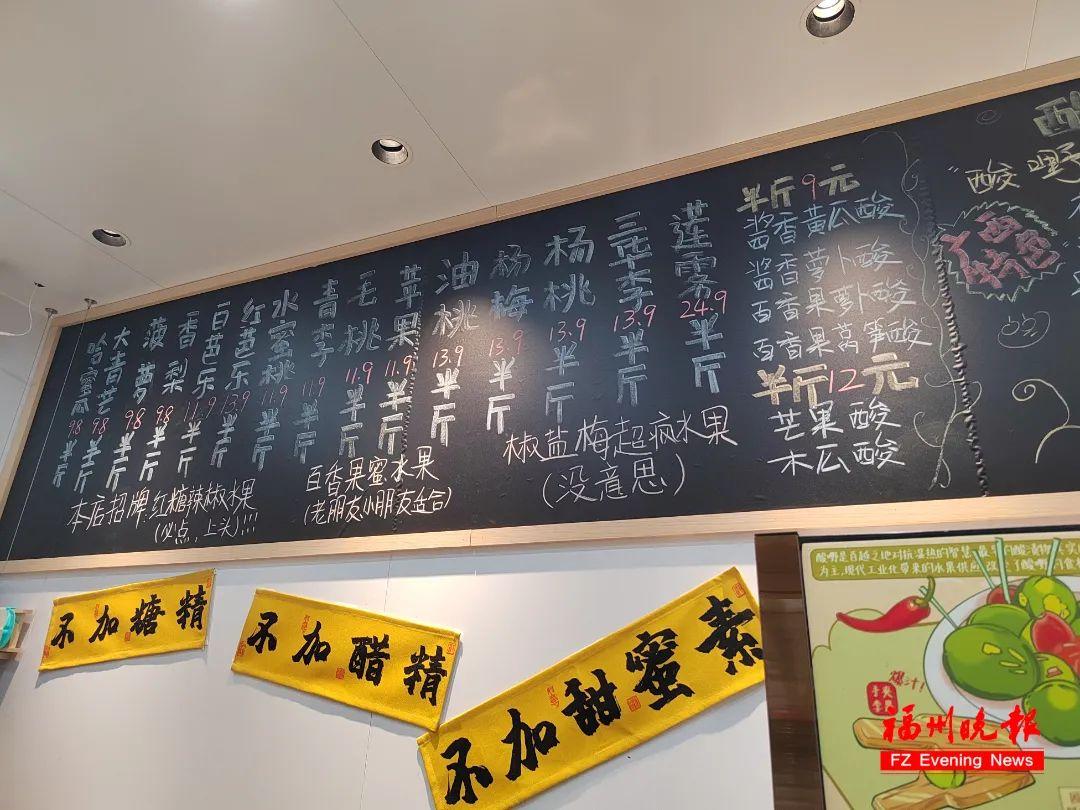 哈蜜瓜 9.8 半斤
大青芒 9.8 半斤
菠萝 9.8 半斤
香梨 9.8 半斤
白芭乐 11.9 半斤
红芭乐 13.9 半斤
水蜜桃 11.9 半斤
青李 11.9 半斤
毛桃 11.9 半斤
苹果 11.9 半斤
油桃 13.9 半斤
杨梅 13.9 半斤
杨桃 13.9 半斤
三华李 13.9 半斤
莲雾 24.9 半斤
本店招牌:红糖辣椒水果
(必点,上头)!!!
百香果蜜水果
(老朋友小朋友适合)
椒盐梅超疯水果
(没意思)
半斤9元
酱香黄瓜酸
酱香萝卜酸
百香果萝卜酸
百香果莴笋酸
半斤12元
芒果酸
木瓜酸
"酸嘢
广西
特色
不加糖精
不加醋精
不加甜蜜素
酸嘢是百越之地对抗湿热的智慧
为主,现代工业化带来的水果供应
爆汁!
福州晚报
FZ Evening News